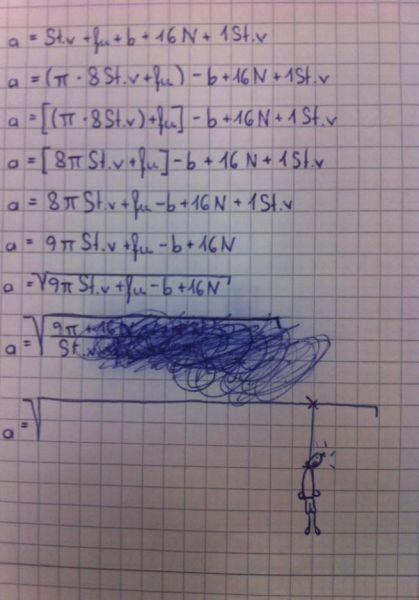 a = St.v + fu + b + 16N + 1St.v
a = (π · 8St.v + fu) - b + 16N + 1St.v
a = [(π · 8St.v) + fu] - b + 16N + 1St.v
a = [8π St.v + fu] - b + 16N + 1St.v
a = 8π St.v + fu - b + 16N + 1St.v
a = 9π St.v + fu - b + 16N
a = √9π St.v + fu - b + 16N
a = √9π + 16
St.v
a = √